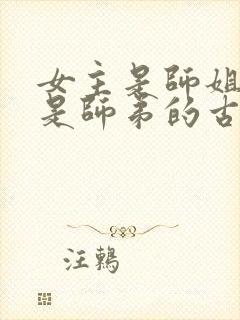 女主是師姐
是師弟的古
汪鷞